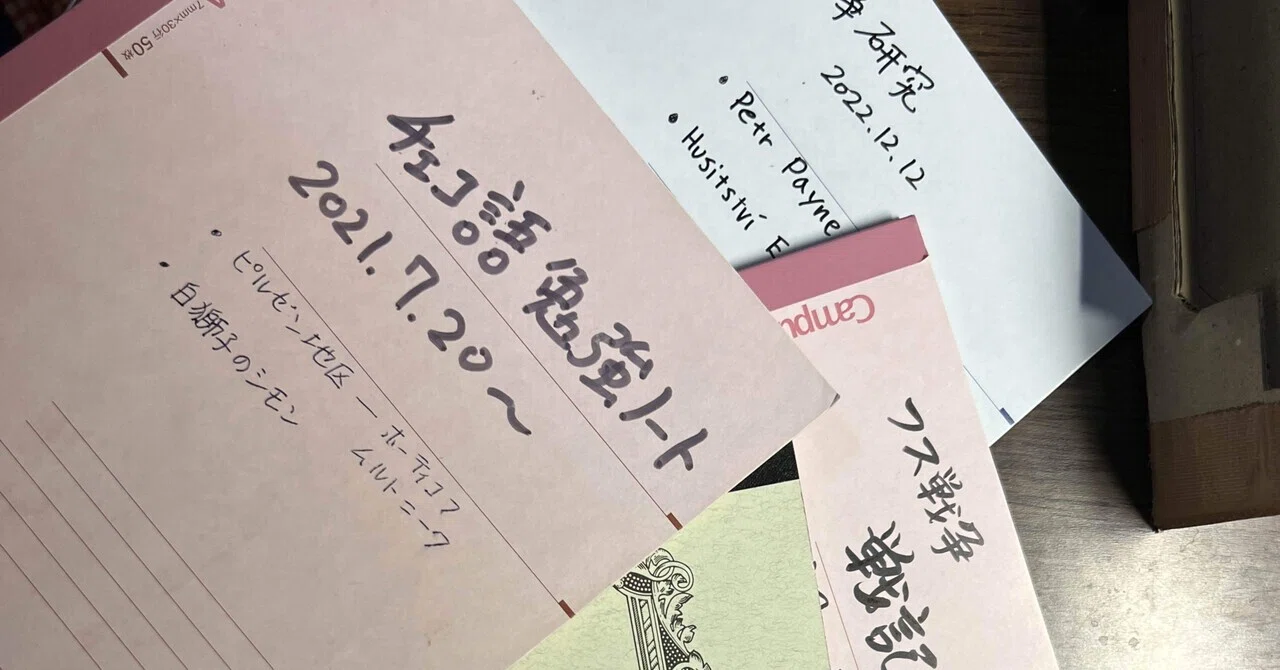 7mm×30行 50枚
チェコ語勉強ノート
2021.7.20〜
・ピルゼン地区 ー ホーティコフ
ムルトニーク
・白獅子のシモン
争研究
2022.12.12
・Petr Payne
・Husitství E
Campu
フス戦争
戦記